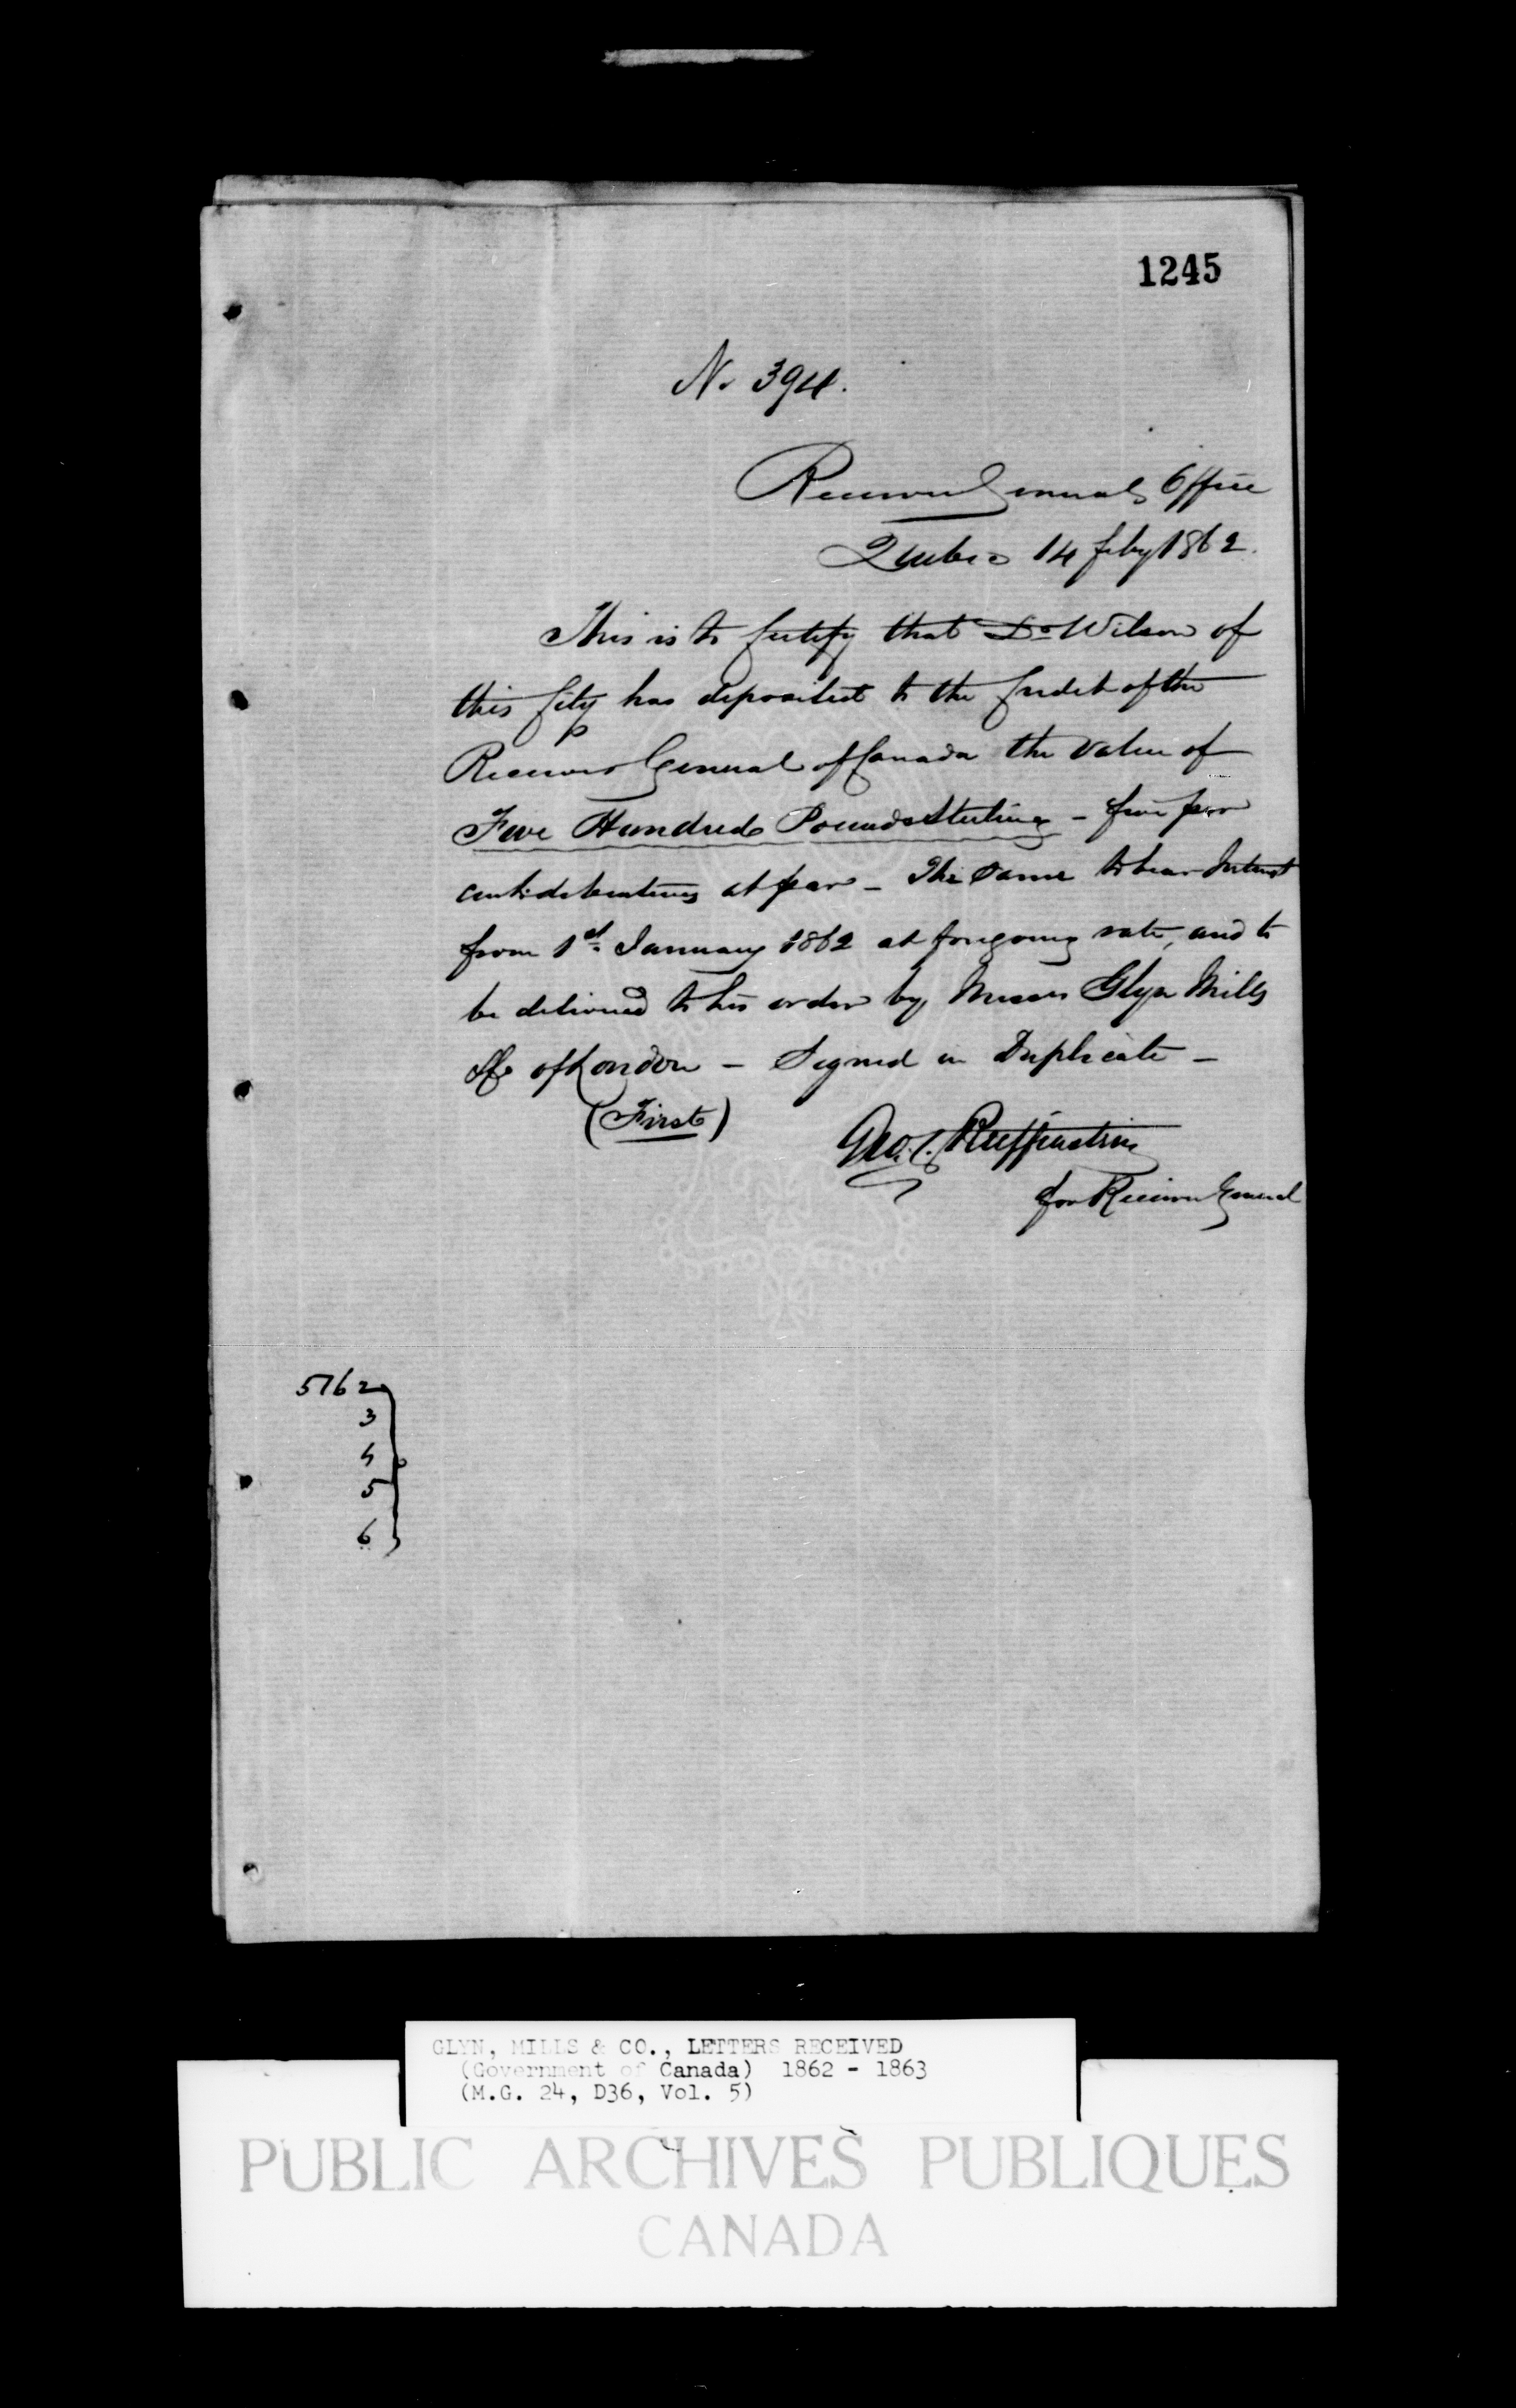 1245
No. 394.
Receiver Generals Office
Quebec 14 Feby 1862.
This is to Certify that Dr Wilson of
this City has deposited to the Credit of the
Receiver General of Canada the Value of
Five Hundred Pounds Sterling - five per
cent debentures at par - The Same to bear Interest
from 1st January 1862 at foregoing rate, and to
be delivered to his order by Messrs Glyn Mills
&Co of London - Signed in Duplicate -
(First)
Geo. C. Reiffenstein
for Receiver General
5762
3
4
5
6
GLYN, MILLS & CO., LETTERS RECEIVED
(Government of Canada) 1862 - 1863
(M.G. 24, D36, Vol. 5)
PUBLIC ARCHIVES PUBLIQUES
CANADA